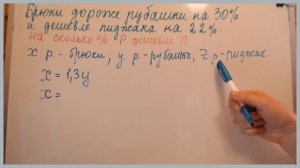 Брюки дороже рубашки на 30%
и дешевле пиджака на 22%.
на сколько % Р дешевле П.
x р. - брюки; y р - рубашка, z р - пиджак.
x = 1,3y
x =